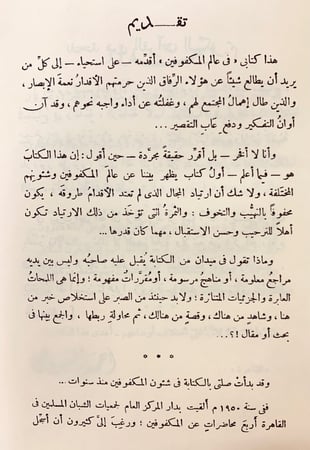 تقـــديم
هذا كتابى « فى عالم المكفوفين » أقدّمه – على استحياء – إلى كلِّ من
يريد أن يطالع شيئاً عن هؤلاء الرِّفاق الذين حرمتهم الأقدارُ نعمةَ الإبصار ،
والذين طال إهمالُ المجتمع لهم ، وغفلتُه عن أداء واجبه نحوهم ، وقد آن
أوانُ التفكير ودفعِ عاب التقصير ...
وأنا لا أفخر – بل أقرِّر حقيقةً مجرَّدة – حين أقول : إن هذا الكتابَ
هو – فيما أعلم – أولُ كتاب يظهر بيننا عن عالَم المكفوفين وشئونهم
المختلفة ، ولا شك أن ارتياد المجال الذى لم تعتد الأقدامُ طروقَه ، يكون
محفوفاً بالتهيُّب والتخوف : والثمرةُ التى تؤخَذ من ذلك الارتياد تكون
أهلاً للترحيب وحسن الاستقبال ، مهما كان قدرها ...
وماذا تقول فى ميدان من الكتابة يُقبل عليه صاحبُه وليس بين يديه
مراجعُ معلومة ، أو مناهجُ مرسومة ، أو مُقرَّراتُ مفهومة ؛ وإنما هى اللمحاتُ
العابرة والجزئيات المتناثرة : ولا بد حينئذ من الصبر على استخلاص خبرٍ من
هنا ، وشاهدٍ من هناك ، وقصةٍ من هنالك ، ثم محاولةِ ربطها ، والجمع بينها فى
بحث أو مقال !؟ ...
° ° °
وقد بدأتْ صلتى بالكتابة فى شئون المكفوفين منذ سنوات ...
ففى سنة ١٩٥٠ م ألقيت بدار المركز العام لجمعيات الشبان المسلمين فى
القاهرة أربعَ محاضراتٍ عن المكفوفين ؛ ورغب إلىَّ كثيرون أن أسجِّل